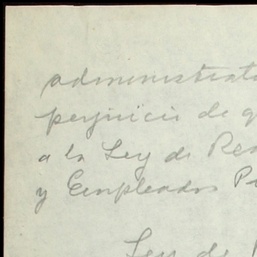 administrat
perjuicio de q
a la Ley de Res
y Empleados P
Ley de